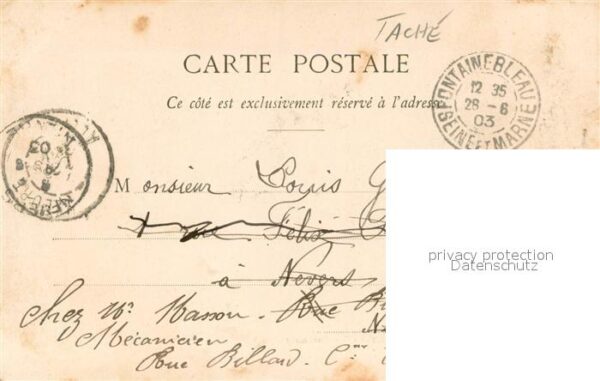 TACHÉ
CARTE POSTALE
Ce côté est exclusivement réservé à l'adresse
FONTAINEBLEAU
12 35
28 - 6
03
SEINE ET MARNE
Monsieur Louis G
rue Félix
à Nevers
Chez Mr. Masson. Rue
Mécanicien
Rue Billard.
privacy protection
Datenschutz